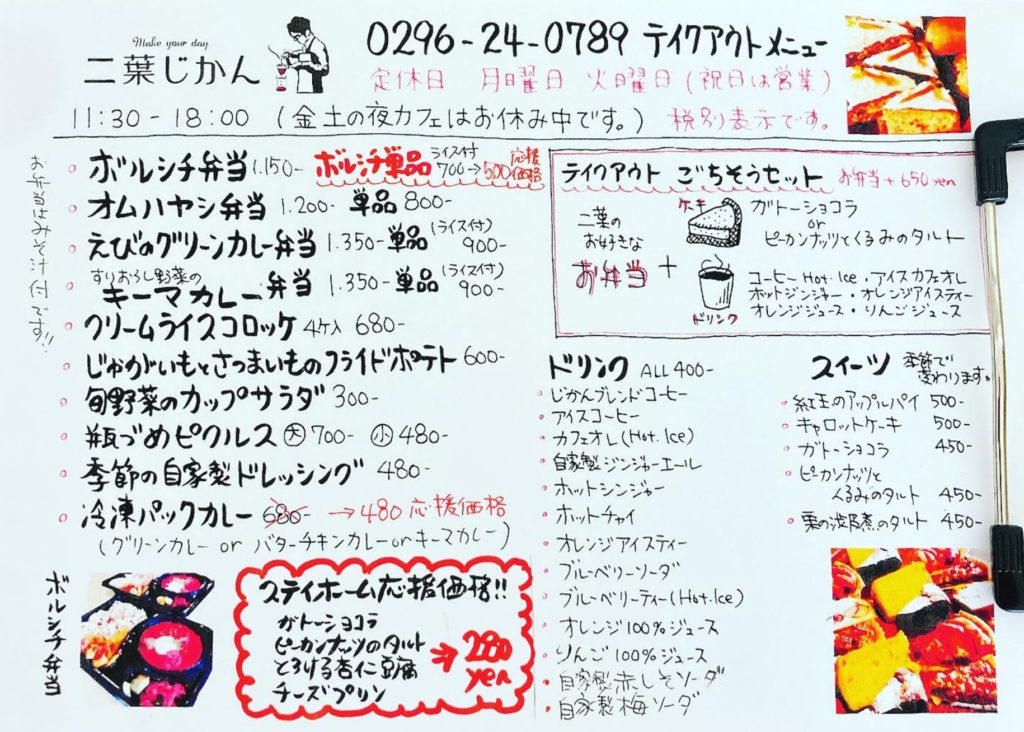 Make your day
二葉じかん
0296-24-0789 テイクアウトメニュー
定休日 月曜日 火曜日(祝日は営業)
11:30-18:00 (金土の夜カフェはお休み中です。) 税別表示です。
お弁当はみそ汁付です!!
ボルシチ弁当 1.150- ボルシチ単品 ライス付 700→500 応援価格
オムハヤシ弁当 1.200- 単品 800-
えびのグリーンカレー弁当 1.350- 単品 (ライス付) 900-
すりおろし野菜の
キーマカレー弁当 1.350- 単品 (ライス付) 900-
クリームライスコロッケ 4ケ入 680-
じゃがいもとさつまいものフライドポテト 600-
旬野菜のカップサラダ 300-
瓶づめピクルス 大 700- 小 480-
季節の自家製ドレッシング 480-
冷凍パックカレー 680- →480 応援価格
(グリーンカレー or バターチキンカレー or キーマカレー)
ボルシチ弁当
ステイホーム応援価格!!
ガトーショコラ
ピーカンナッツのタルト
とろける杏仁豆腐
チーズプリン
280 yen
テイクアウト ごちそうセット お弁当+650yen
二葉の
お好きな
お弁当 +
ケーキ
ガトーショコラ
or
ピーカンナッツとくるみのタルト
ドリンク
コーヒー Hot・Ice・アイスカフェオレ
ホットジンジャー・オレンジアイスティー
オレンジジュース・りんごジュース
ドリンク ALL 400-
じかんブレンドコーヒー
アイスコーヒー
カフェオレ(Hot. Ice)
自家製ジンジャーエール
ホットジンジャー
ホットチャイ
オレンジアイスティー
ブルーベリーソーダ
ブルーベリーティー(Hot.Ice)
オレンジ100%ジュース
りんご100%ジュース
自家製赤しそソーダ
自家製梅ソーダ
スイーツ 季節で変わります。
紅玉のアップルパイ 500-
キャロットケーキ 500-
ガトーショコラ 450-
ピーカンナッツと
くるみのタルト 450-
栗の渋皮煮のタルト 450-